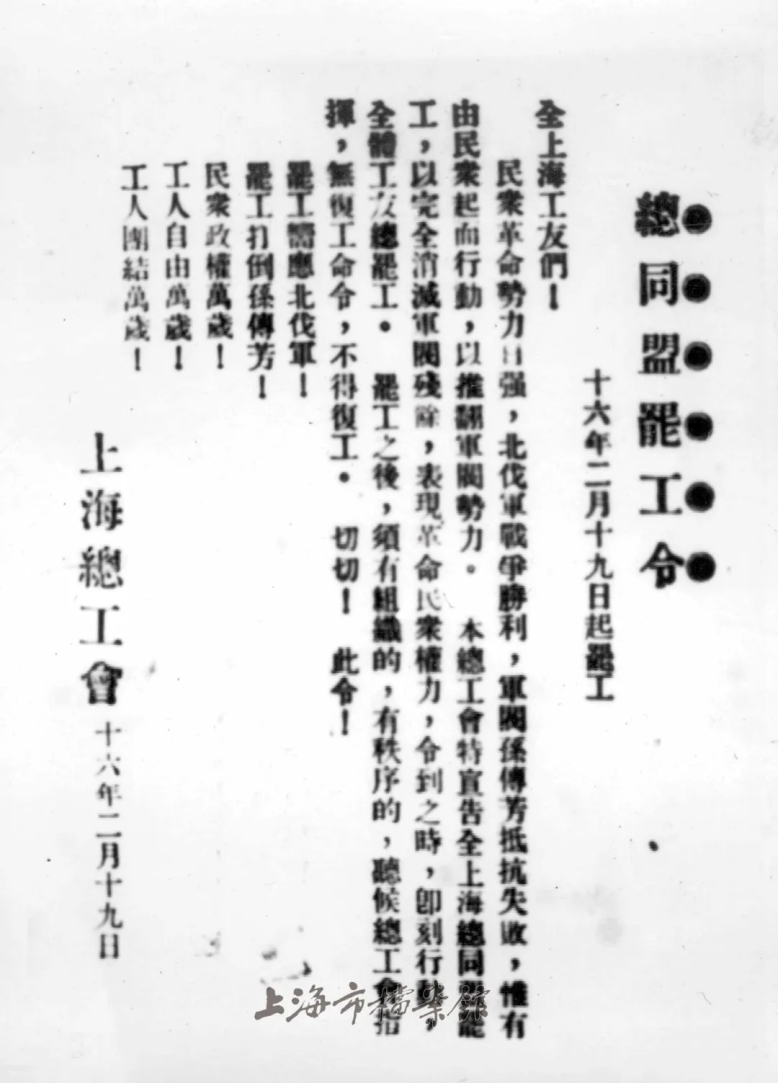 總同盟罷工令
十六年二月十九日起罷工
全上海工友們！
民衆革命勢力日强，北伐軍戰爭勝利，軍閥孫傳芳抵抗失敗，惟有
由民衆起而行動，以推翻軍閥勢力。　本總工會特宣告全上海總同盟罷
工，以完全消滅軍閥殘餘，表現革命民衆權力，令到之時，卽刻行動，
全體工友總罷工。　罷工之後，須有組織的，有秩序的，聽候總工會指
揮，無復工命令，不得復工。　切切！　此令！
罷工響應北伐軍！
罷工打倒孫傳芳！
民衆政權萬歲！
工人自由萬歲！
工人團結萬歲！
上海總工會 十六年二月十九日
上海市檔案館